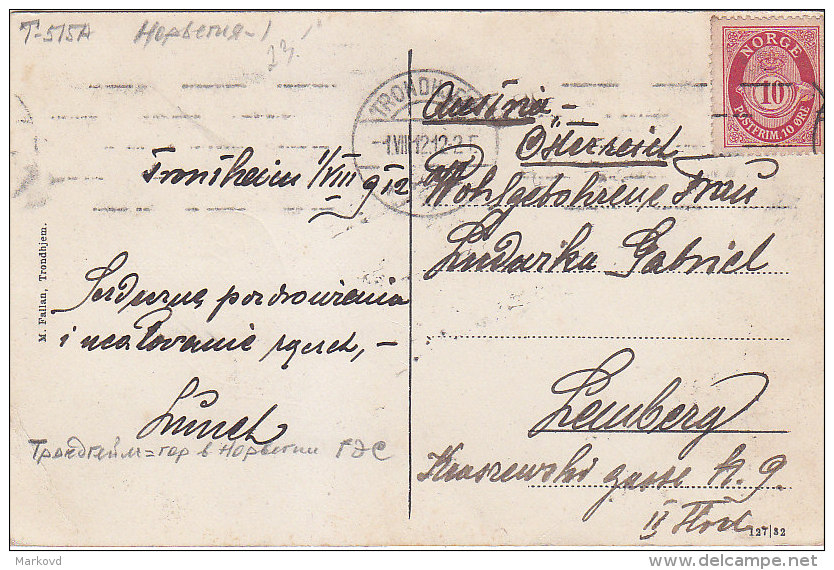 T-515A Норвегия-1
23.
NORGE
10
POSTFRIM. 10 ØRE
TRONDHJEM
1 VIII 12 12-2 E
Austria,-
Österreich
Trontheim 1/VIII 912
Wohlgebohrene Frau
Ludwika Gabriel
Serdeczne pozdrowienia
i ucałowanie rączek,-
Lemberg
Kraszewski gasse N. 9.
II Stock
Трондгейм=гор в Норвегии
M. Fallan, Trondhjem.
127/32
Markovd